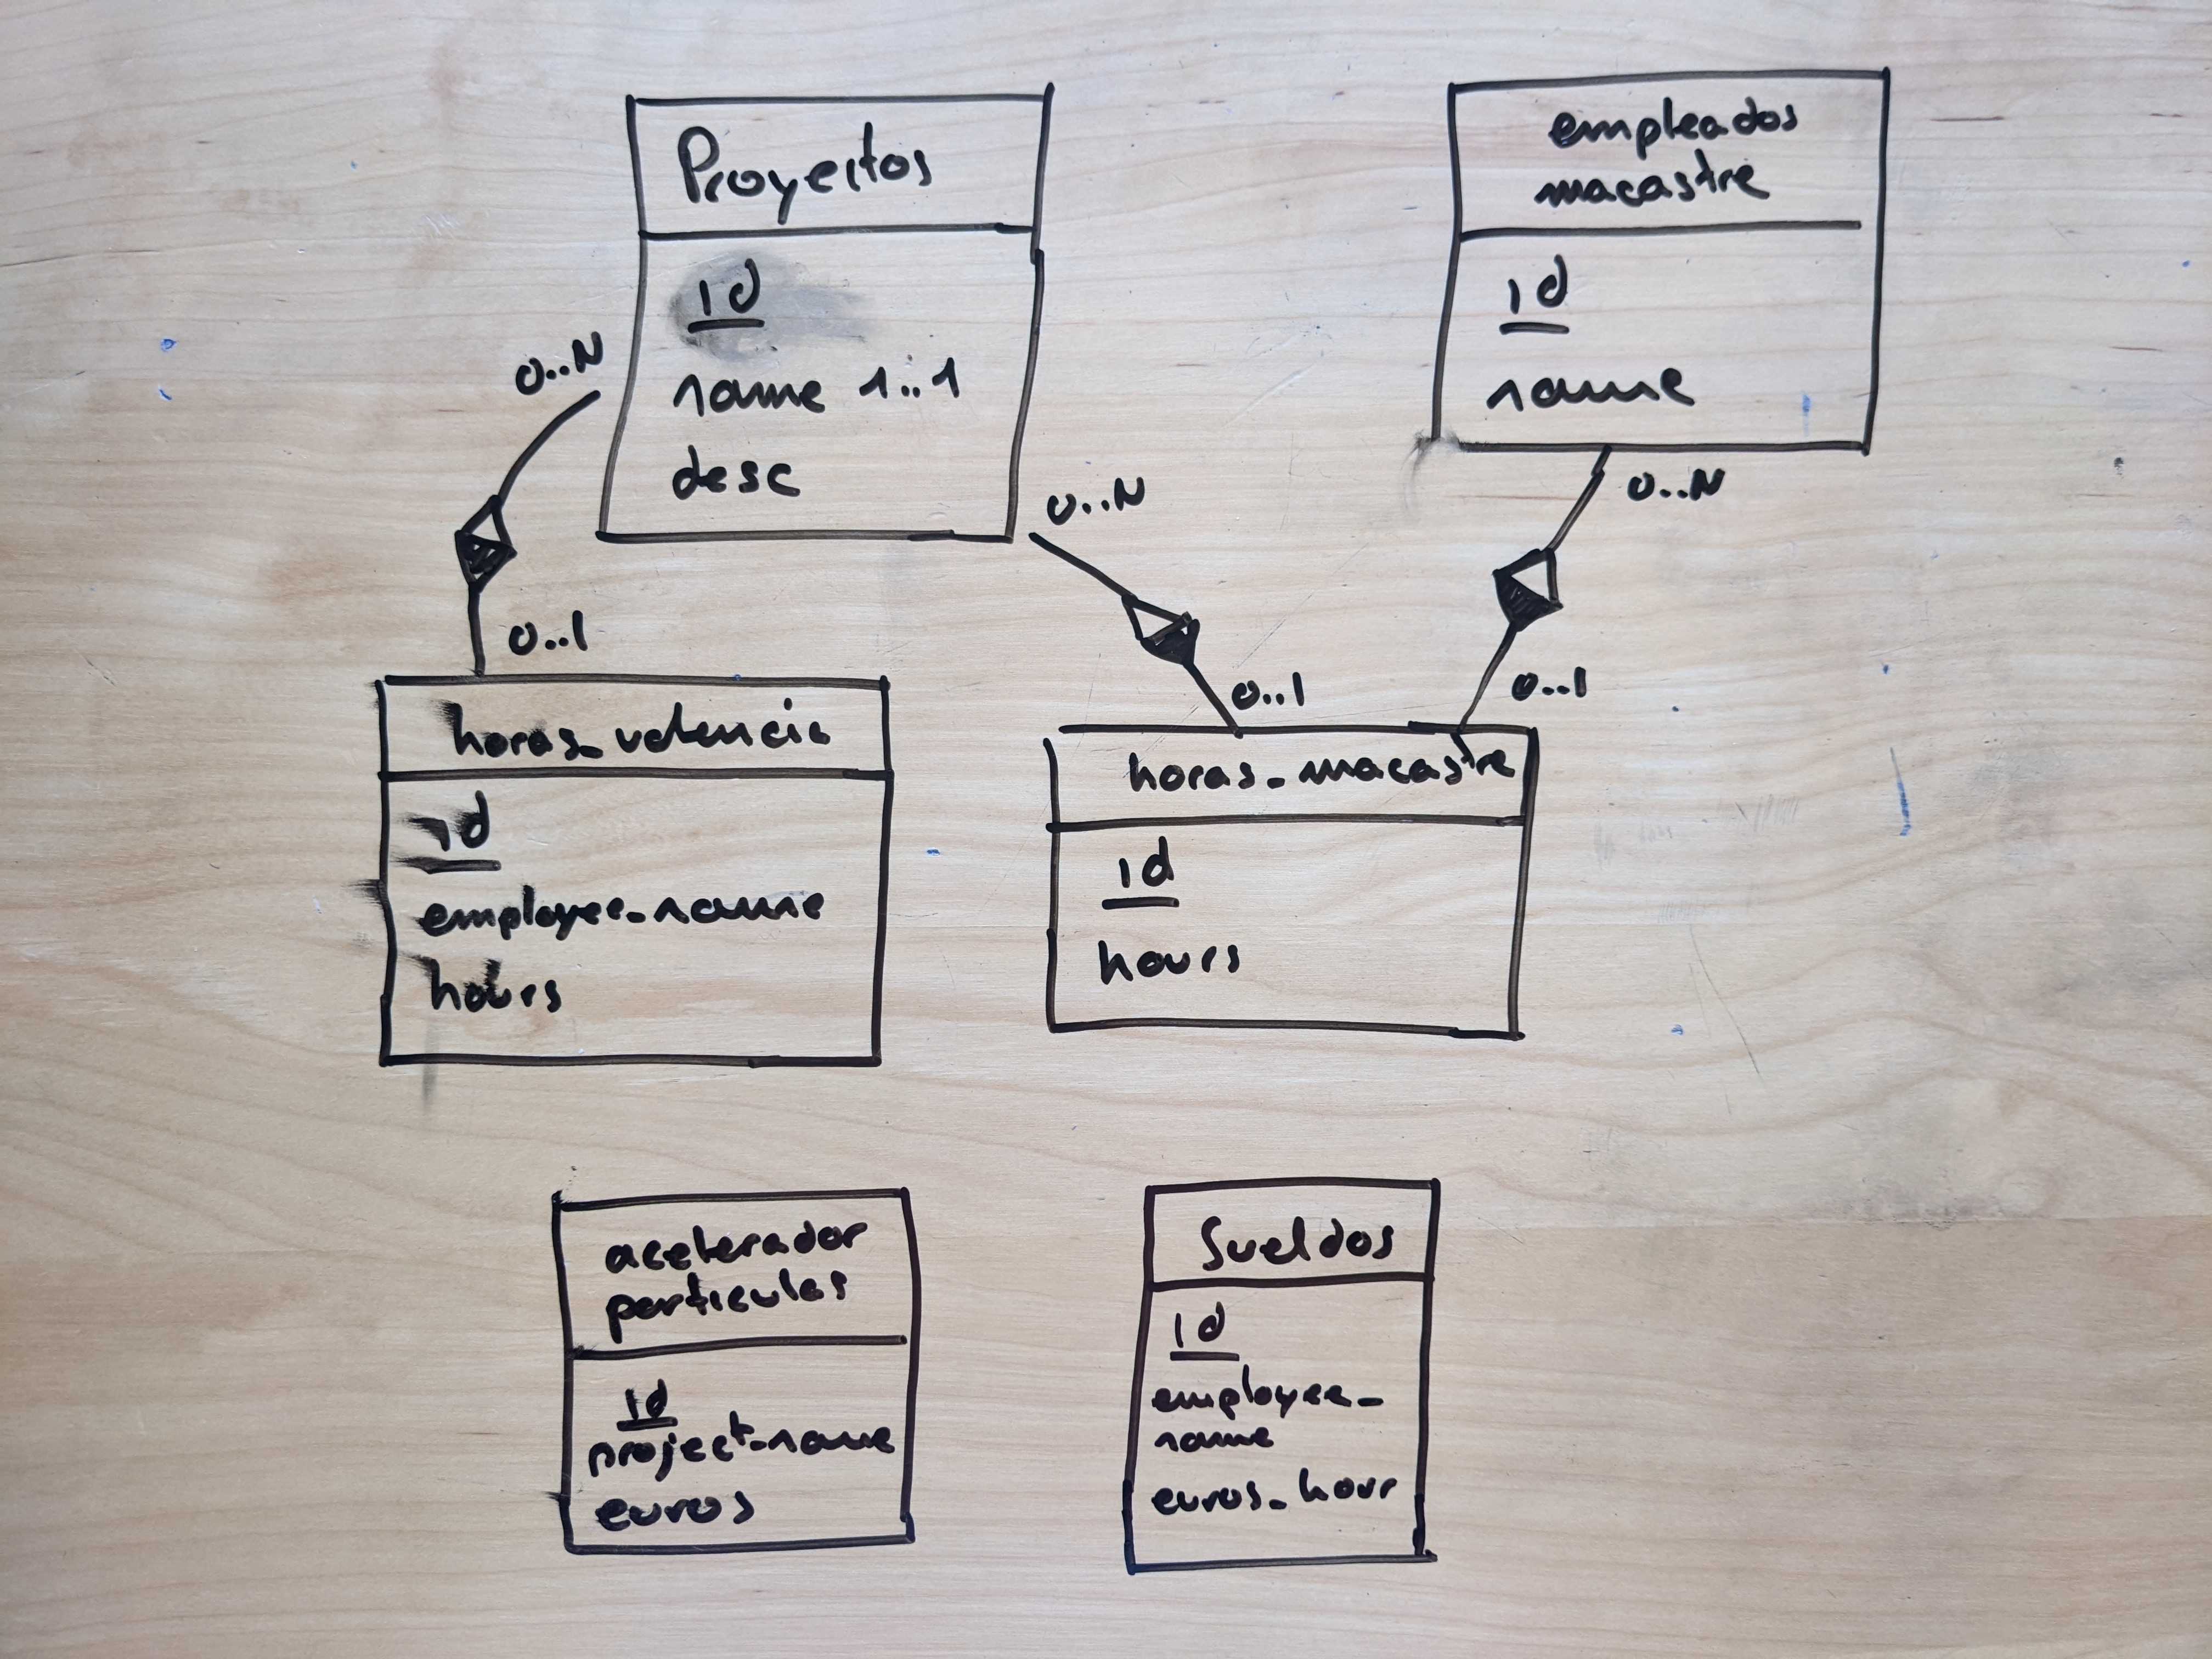 Proyectos
id
name 1..1
desc
empleados
macastre
id
name
0..N
0..N
0..N
0..1
0..1
0..1
horas_valencia
id
employee_name
hours
horas_macastre
id
hours
acelerador
particulas
id
project_name
euros
Sueldos
id
employee_
name
euros_hour